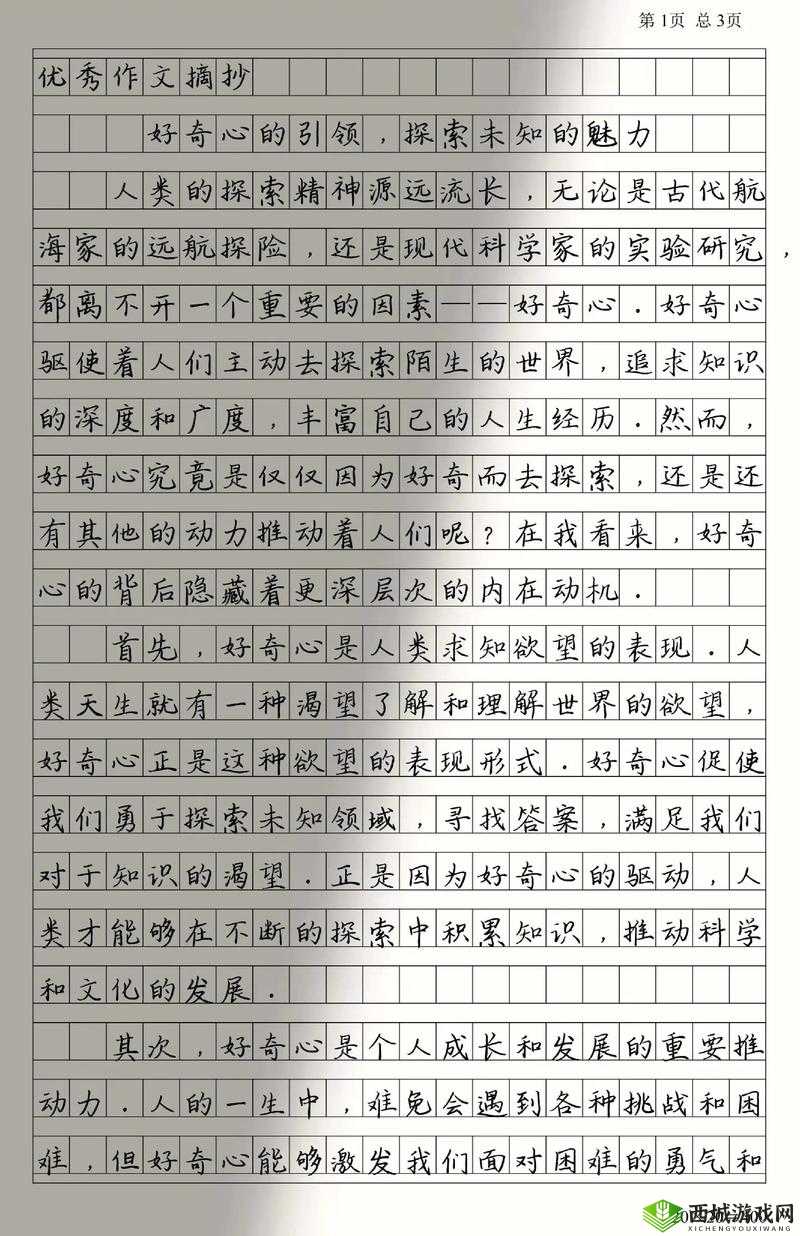 第1页 总3页
优秀作文摘抄
好奇心的引领，探索未知的魅力
人类的探索精神源远流长，无论是古代航
海家的远航探险，还是现代科学家的实验研究，
都离不开一个重要的因素——好奇心．好奇心
驱使着人们主动去探索陌生的世界，追求知识
的深度和广度，丰富自己的人生经历．然而，
好奇心究竟是仅仅因为好奇而去探索，还是还
有其他的动力推动着人们呢？在我看来，好奇
心的背后隐藏着更深层次的内在动机．
首先，好奇心是人类求知欲望的表现．人
类天生就有一种渴望了解和理解世界的欲望，
好奇心正是这种欲望的表现形式．好奇心促使
我们勇于探索未知领域，寻找答案，满足我们
对于知识的渴望．正是因为好奇心的驱动，人
类才能够在不断的探索中积累知识，推动科学
和文化的发展．
其次，好奇心是个人成长和发展的重要推
动力．人的一生中，难免会遇到各种挑战和困
难，但好奇心能够激发我们面对困难的勇气和
西城游戏网
XICHENGYOUXIWANG